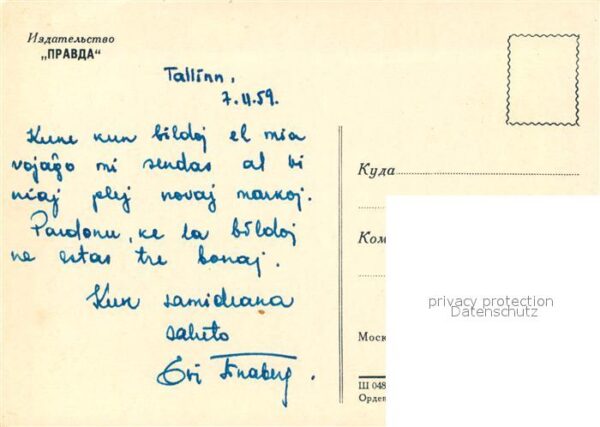 Издательство
„ПРАВДА“
Tallinn,
7.II.59.
Kune kun bildoj el mia
vojaĝo mi sendas al vi
niaj plej novaj markoj.
Pardonu, ke la bildoj
ne estas tre bonaj.
Kun samideana
saluto
Куда
Ком
Моск
Ш 048
Орден
privacy protection
Datenschutz